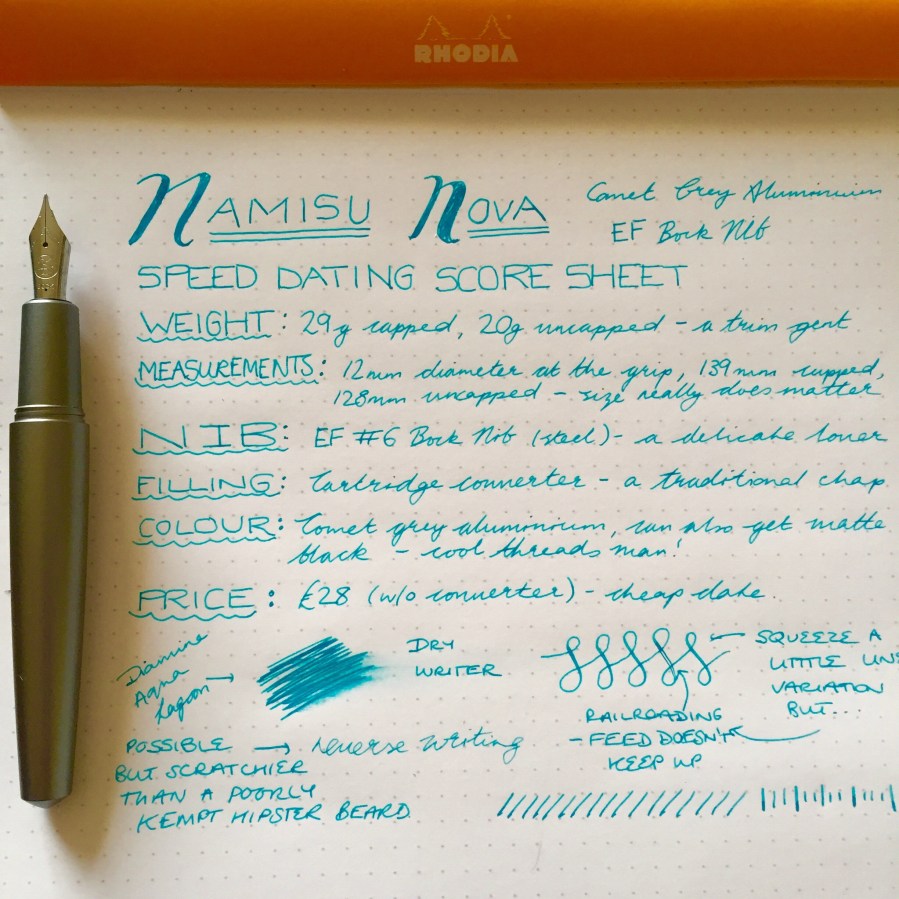 RHODIA
NAMISU NOVA
Comet Grey Aluminium
EF Bock Nib
SPEED DATING SCORE SHEET
WEIGHT: 29g capped, 20g uncapped - a trim gent
MEASUREMENTS: 12mm diameter at the grip, 139mm capped,
128mm uncapped - size really does matter
NIB: EF #6 Bock Nib (steel) - a delicate lover
FILLING: Cartridge converter - a traditional chap
COLOUR: Comet grey aluminium, can also get matte
black - cool threads man!
PRICE: £28 (w/o converter) - cheap date.
Diamine
Aqua
Lagoon →
DRY
WRITER
SQUEEZE A
LITTLE LINE
VARIATION
BUT...
RAILROADING
- FEED DOESN'T
KEEP UP
POSSIBLE → reverse writing
BUT SCRATCHIER
THAN A POORLY
KEMPT HIPSTER BEARD.